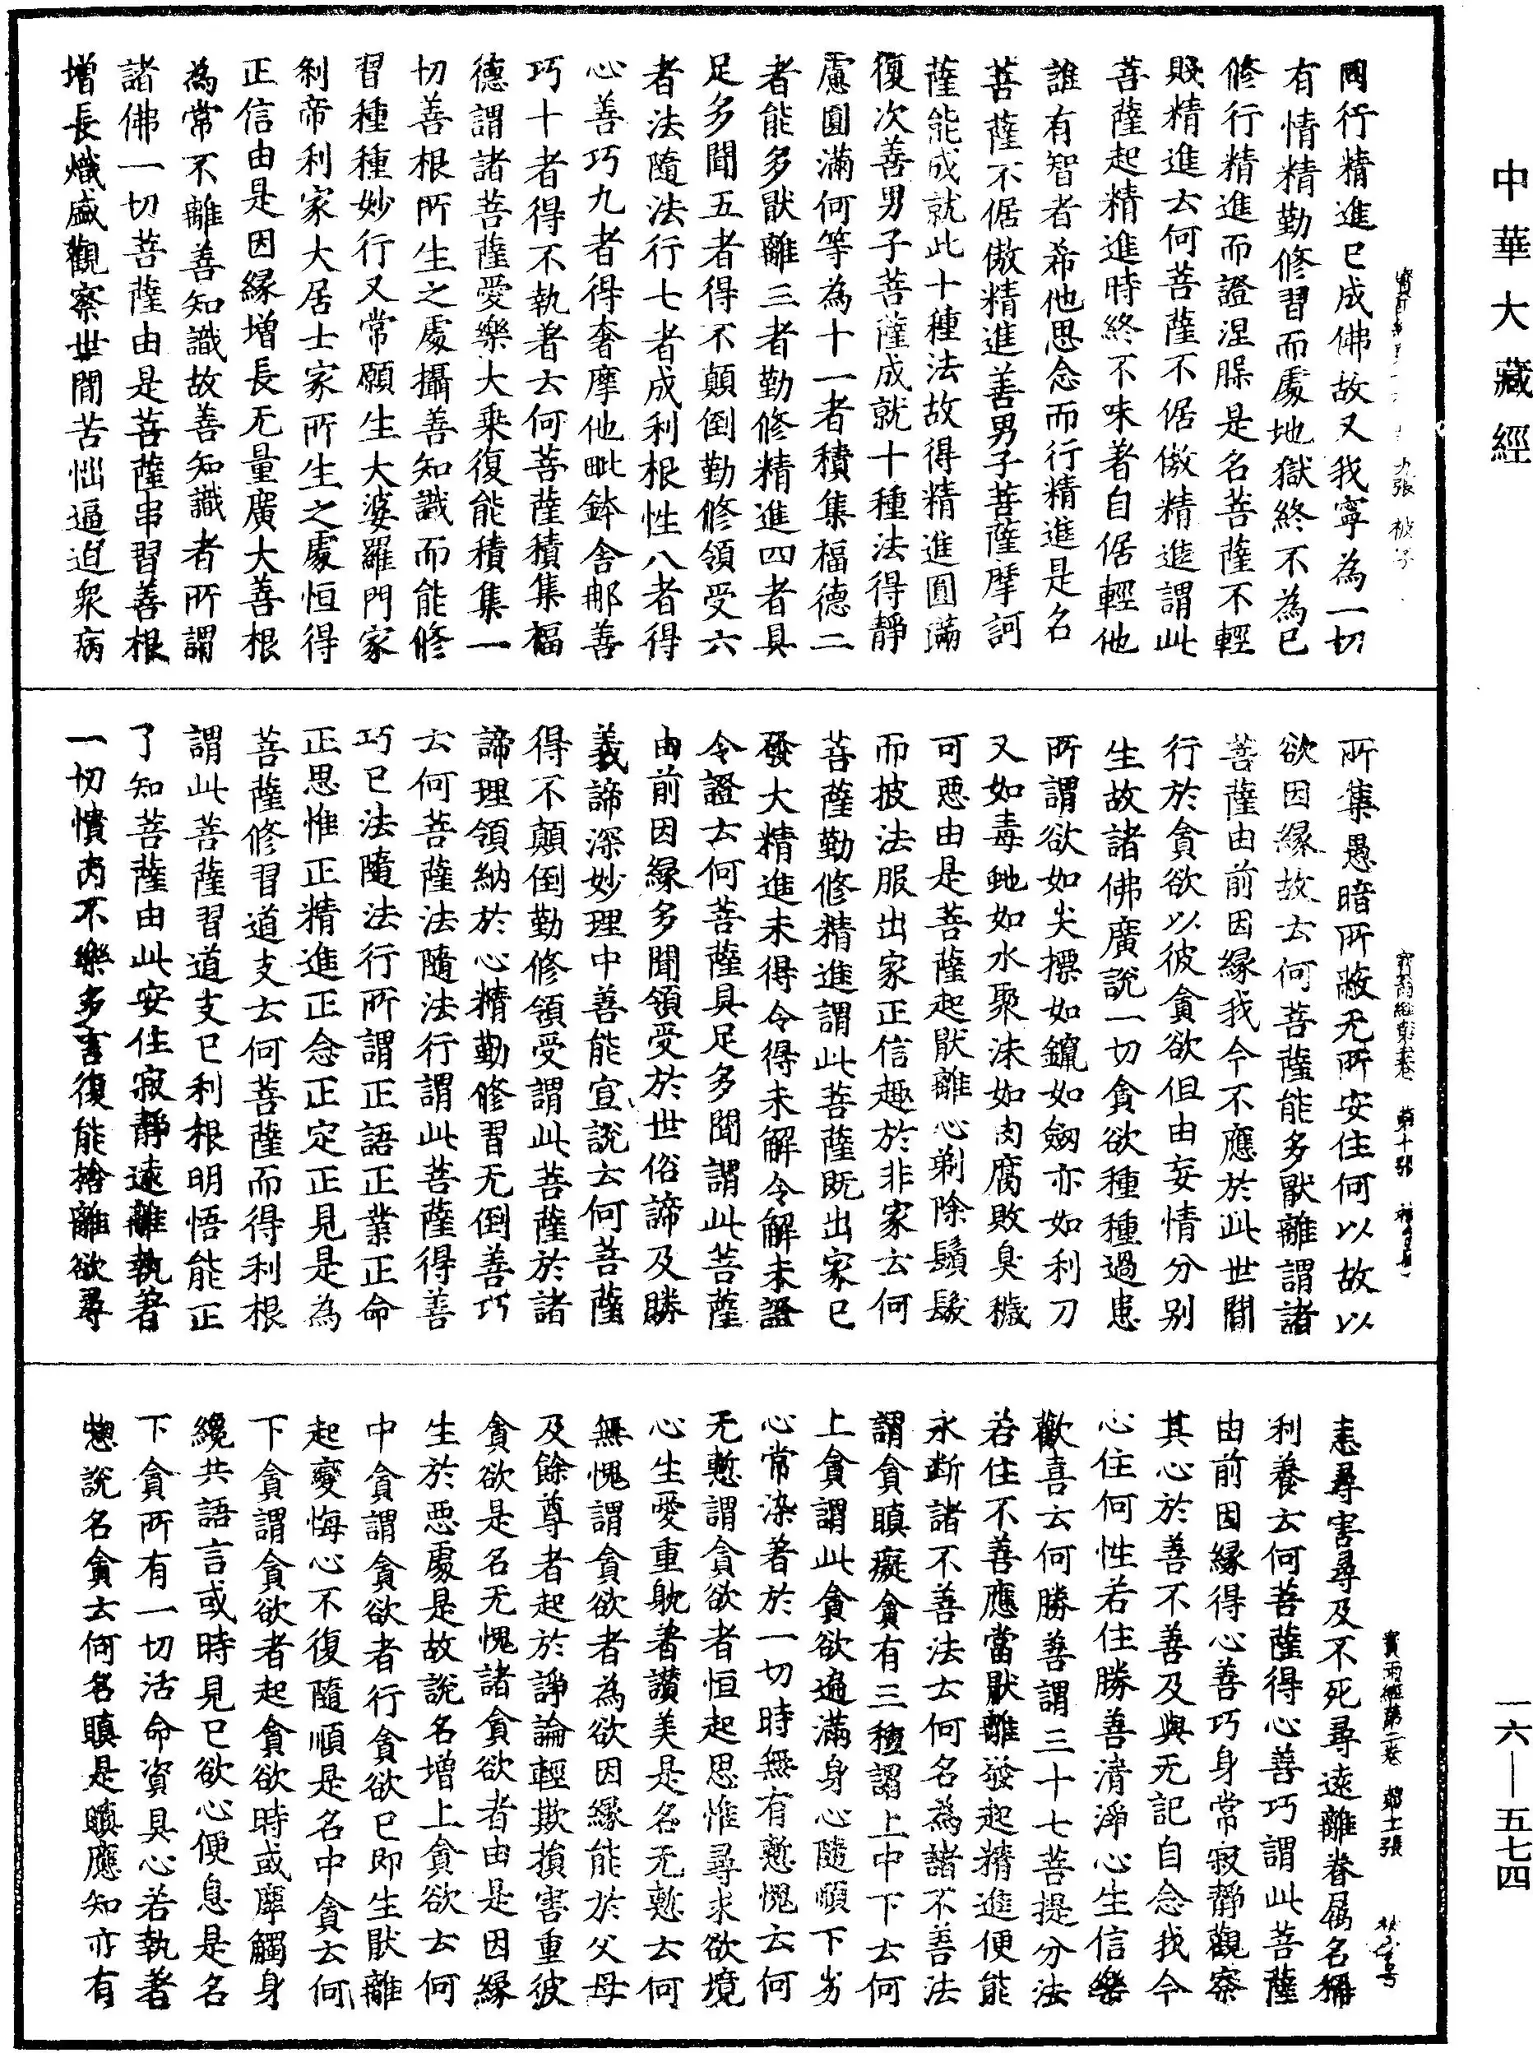 中華大藏經
同行精進已成佛故又我寧為一切
有情精勤修習而處地獄終不為已
修行精進而證涅槃是名菩薩不輕
賤精進去何菩薩不倨傲精進謂此
菩薩起精進時終不味著自倨輕他
誰有智者希他思念而行精進是名
菩薩不倨傲精進善男子菩薩摩訶
薩能成就此十種法故得精進圓滿
復次善男子菩薩成就十種法得靜
慮圓滿何等為十一者積集福德二
者能多猒離三者勤修精進四者具
足多聞五者得不顛倒勤修領受六
者法隨法行七者成利根性八者得
心善巧九者得奢摩他毗鉢舍那善
巧十者得不執著去何菩薩積集福
德謂諸菩薩愛樂大乘復能積集一
切善根所生之處攝善知識而能修
習種種妙行又常願生大婆羅門家
刹帝利家大居士家所生之處恒得
正信由是因緣增長无量廣大善根
為常不離善知識故善知識者所謂
諸佛一切菩薩由是菩薩串習善根
增長熾盛觀察世間苦惱逼迫衆病
所集愚暗所蔽无所安住何以故以
欲因緣故去何菩薩能多猒離謂諸
菩薩由前因緣我今不應於此世間
行於貪欲以彼貪欲但由妄情分別
生故諸佛廣說一切貪欲種種過患
所謂欲如尖摽如鑹如劒亦如利刀
又如毒虵如水聚沫如肉腐敗臭穢
可惡由是菩薩起猒離心剃除鬚髮
而披法服出家正信趣於非家去何
菩薩勤修精進謂此菩薩既出家已
發大精進未得令得未解令解未證
令證去何菩薩具足多聞謂此菩薩
由前因緣多聞領受於世俗諦及勝
義諦深妙理中善能宣說去何菩薩
得不顛倒勤修領受謂此菩薩於諸
諦理領納於心精勤修習无倒善巧
去何菩薩法隨法行謂此菩薩得善
巧已法隨法行所謂正語正業正命
正思惟正精進正念正定正見是為
菩薩修習道支去何菩薩而得利根
謂此菩薩習道支已利根明悟能正
了知菩薩由此安住寂靜遠離執著
一切憒丙不樂多言復能捨離欲尋
恚尋害尋及不死尋遠離眷屬名稱
利養去何菩薩得心善巧謂此菩薩
由前因緣得心善巧身常寂靜觀察
其心於善不善及與无記自念我今
心住何性若住勝善清淨心生信樂
歡喜去何勝善謂三十七菩提分法
若住不善應當猒離發起精進便能
永斷諸不善法去何名為諸不善法
謂貪瞋癡貪有三種謂上中下去何
上貪謂此貪欲遍滿身心隨順下劣
心常染著於一切時無有慙愧去何
无慙謂貪欲者恒起思惟尋求欲境
心生愛重躭著讚美是名无慙去何
無愧謂貪欲者為欲因緣能於父母
及餘尊者起於諍論輕欺損害重彼
貪欲是名无愧諸貪欲者由是因緣
生於惡處是故說名增上貪欲去何
中貪謂貪欲者行貪欲已即生猒離
起變悔心不復隨順是名中貪去何
下貪謂貪欲者起貪欲時或摩觸身
纔共語言或時見已欲心便息是名
下貪所有一切活命資具心若執著
惣說名貪去何名瞋是瞋應知亦有
寶雨經第二卷
一六—五七四